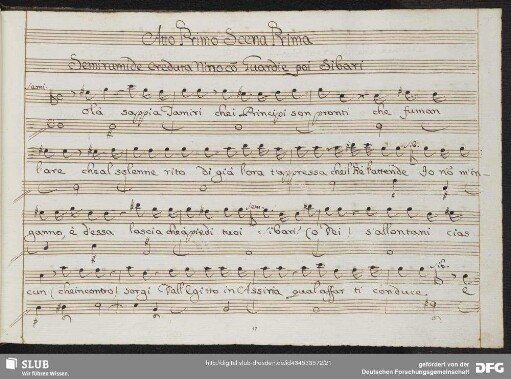 Atto Primo Scena Prima
Semiramide creduta Nino cō Guardie poi Sibari
Semi.
Olà sappia Tamiri che i Principi son pronti che fuman
sib.
l'are che al solenne rito di già l'ora s'appressa che il Rè l'attende Io nō m'in-
Sem.
ganno, è dessa lascia che a piedi tuoi Sibari (o Dei) s'allontani cias
sib.
cun (che incontro) sorgi Dall'Egitto in Assiria qual affar ti conduce, è
SLUB
Wir führen Wissen.
http://digital.slub-dresden.de/id434593572/21
gefördert von der
Deutschen Forschungsgemeinschaft
DFG